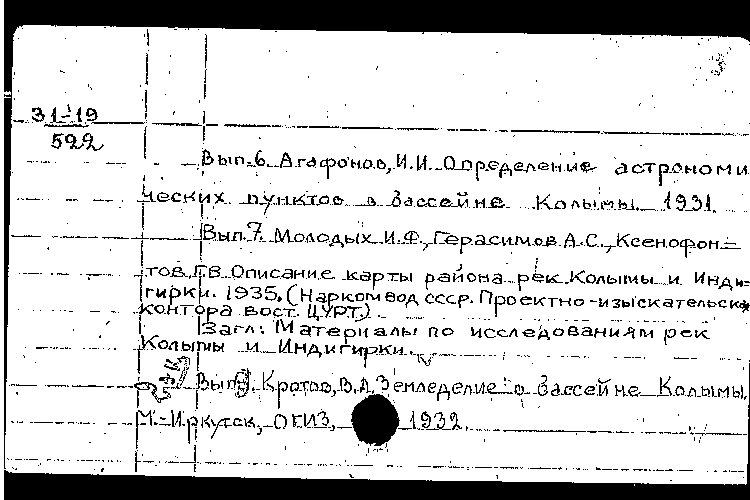 31-19
592
Вып.6. Агафонов, И.И. Определение астрономи
ческих пунктов в бассейне Колымы 1931.
Вып.7. Молодых И.Ф., Герасимов А.С., Ксенофон-
тов, Г.В. Описание карты района рек Колымы и Инди-
гирки. 1935. (Наркомвод СССР. Проектно-изыскательская
контора вост. ЦУРТ).
Загл: Материалы по исследованиям рек
Колымы и Индигирки.
Вып. Кротов, В.А. Земледелие в бассейне Колымы.
М.-Иркутск, ОГИЗ, 1932.